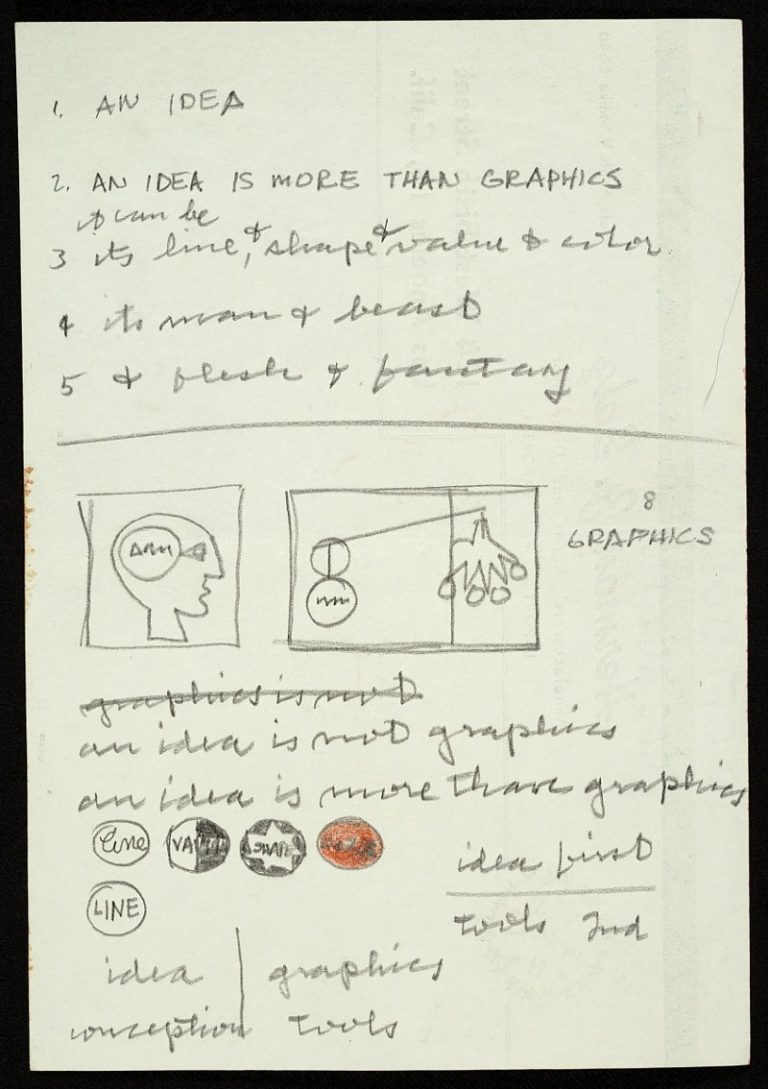 1. AN IDEA
2. AN IDEA IS MORE THAN GRAPHICS
it can be
3 its line, & shape & value & color
4 its man & beast
5 & flesh & fantasy
8
GRAPHICS
graphics is not
an idea is not graphics
an idea is more than graphics
line VALUE SHAPE
idea first
LINE
tools 2nd
idea | graphics
conception tools